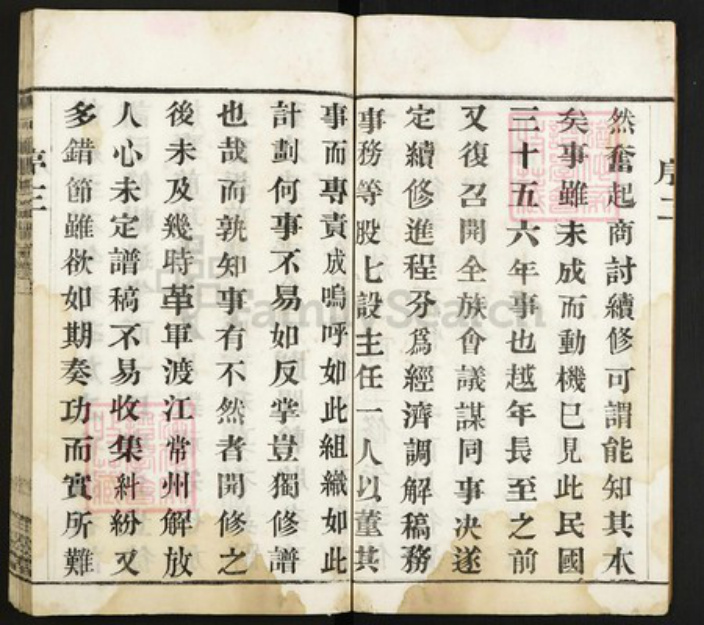 序二
然奮起商討續修可謂能知其本
矣事雖未成而動機已見此民國
三十五六年事也越年長至之前
又復召開全族會議謀同事决遂
定續修進程分爲經濟調解稿務
事務等股七設主任一人以董其
事而專責成嗚呼如此組織如此
計劃何事不易如反掌豈獨修譜
也哉而孰知事有不然者開修之
後未及幾時革軍渡江常州解放
人心未定譜稿不易收集糾紛又
多錯節雖欲如期奏功而實所難
序三
FamilySearch